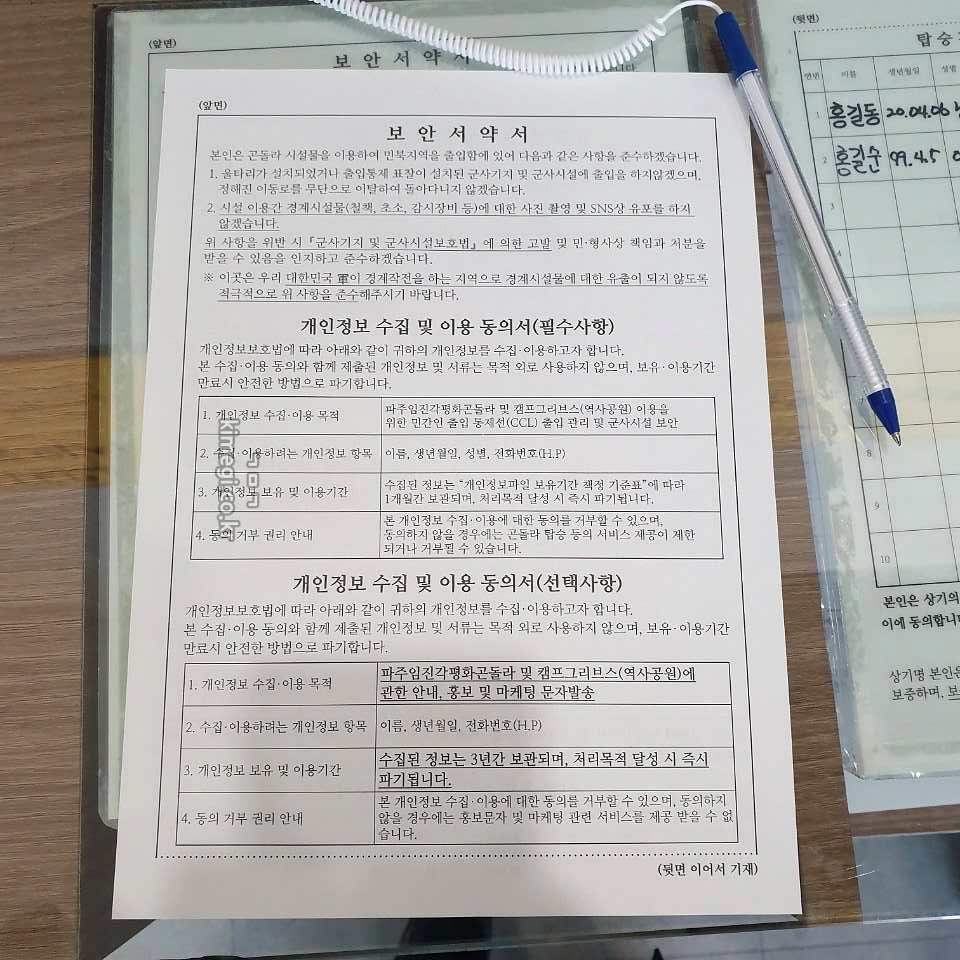 (앞면)
보 안 서 약 서
(뒷면)
탑 승
연번 이름 생년월일 성별
1 홍길동 20.04.06
2 홍길순 99.4.5
3
8
9
10
본인은 상기의
이에 동의합니
상기명 본인은
보증하며,
(앞면)
보 안 서 약 서
본인은 곤돌라 시설물을 이용하여 민북지역을 출입함에 있어 다음과 같은 사항을 준수하겠습니다.
1. 울타리가 설치되었거나 출입통제 표찰이 설치된 군사기지 및 군사시설에 출입을 하지않겠으며,
정해진 이동로를 무단으로 이탈하여 돌아다니지 않겠습니다.
2. 시설 이용간 경계시설물(철책, 초소, 감시장비 등)에 대한 사진 촬영 및 SNS상 유포를 하지
않겠습니다.
위 사항을 위반 시 『군사기지 및 군사시설보호법』에 의한 고발 및 민·형사상 책임과 처분을
받을 수 있음을 인지하고 준수하겠습니다.
※ 이곳은 우리 대한민국 軍이 경계작전을 하는 지역으로 경계시설물에 대한 유출이 되지 않도록
적극적으로 위 사항을 준수해주시기 바랍니다.
개인정보 수집 및 이용 동의서(필수사항)
개인정보보호법에 따라 아래와 같이 귀하의 개인정보를 수집·이용하고자 합니다.
본 수집·이용 동의와 함께 제출된 개인정보 및 서류는 목적 외로 사용하지 않으며, 보유·이용기간
만료시 안전한 방법으로 파기합니다.
1. 개인정보 수집·이용 목적
파주임진각평화곤돌라 및 캠프그리브스(역사공원) 이용을
위한 민간인 출입 통제선(CCL) 출입 관리 및 군사시설 보안
2. 수집·이용하려는 개인정보 항목
이름, 생년월일, 성별, 전화번호(H.P)
3. 개인정보 보유 및 이용기간
수집된 정보는 "개인정보파일 보유기간 책정 기준표"에 따라
1개월간 보관되며, 처리목적 달성 시 즉시 파기됩니다.
4. 동의 거부 권리 안내
본 개인정보 수집·이용에 대한 동의를 거부할 수 있으며,
동의하지 않을 경우에는 곤돌라 탑승 등의 서비스 제공이 제한
되거나 거부될 수 있습니다.
kimegi.co.kr
개인정보 수집 및 이용 동의서(선택사항)
개인정보보호법에 따라 아래와 같이 귀하의 개인정보를 수집·이용하고자 합니다.
본 수집·이용 동의와 함께 제출된 개인정보 및 서류는 목적 외로 사용하지 않으며, 보유·이용기간
만료시 안전한 방법으로 파기합니다.
1. 개인정보 수집·이용 목적
파주임진각평화곤돌라 및 캠프그리브스(역사공원)에
관한 안내, 홍보 및 마케팅 문자발송
2. 수집·이용하려는 개인정보 항목
이름, 생년월일, 전화번호(H.P)
3. 개인정보 보유 및 이용기간
수집된 정보는 3년간 보관되며, 처리목적 달성 시 즉시
파기됩니다.
4. 동의 거부 권리 안내
본 개인정보 수집·이용에 대한 동의를 거부할 수 있으며, 동의하지
않을 경우에는 홍보문자 및 마케팅 관련 서비스를 제공 받을 수 없
습니다.
(뒷면 이어서 기재)